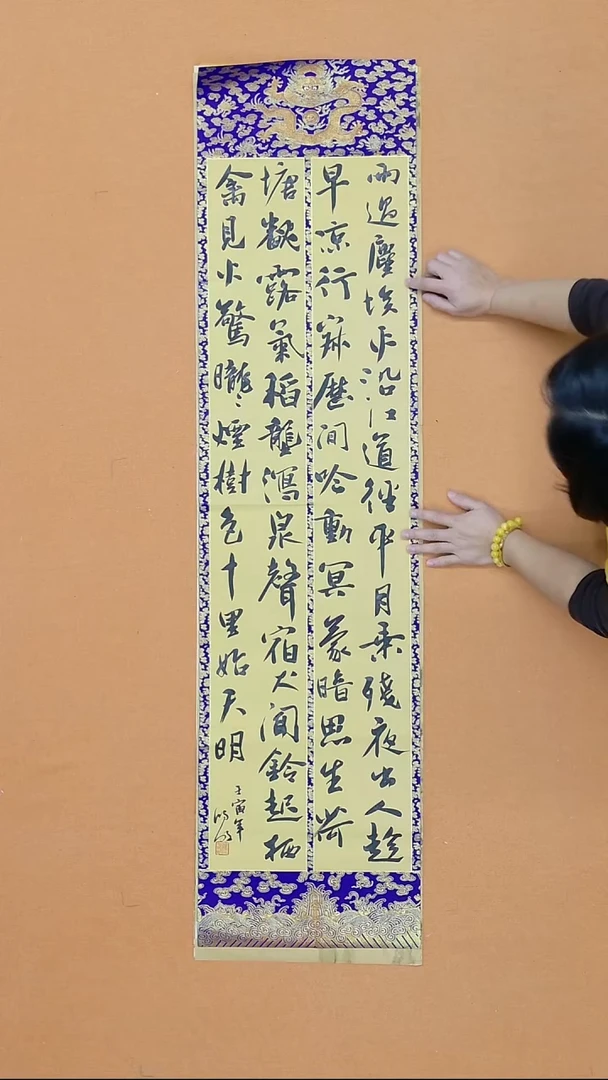 雨過塵埃灭沿江道徑平月乘殘夜出人趁
早涼行寂歷閒吟動冥蒙暗思生荷
塘翻露氣稻壟瀉泉聲宿犬聞鈴起栖
禽見火驚曨々煙樹色十里始天明
壬寅年